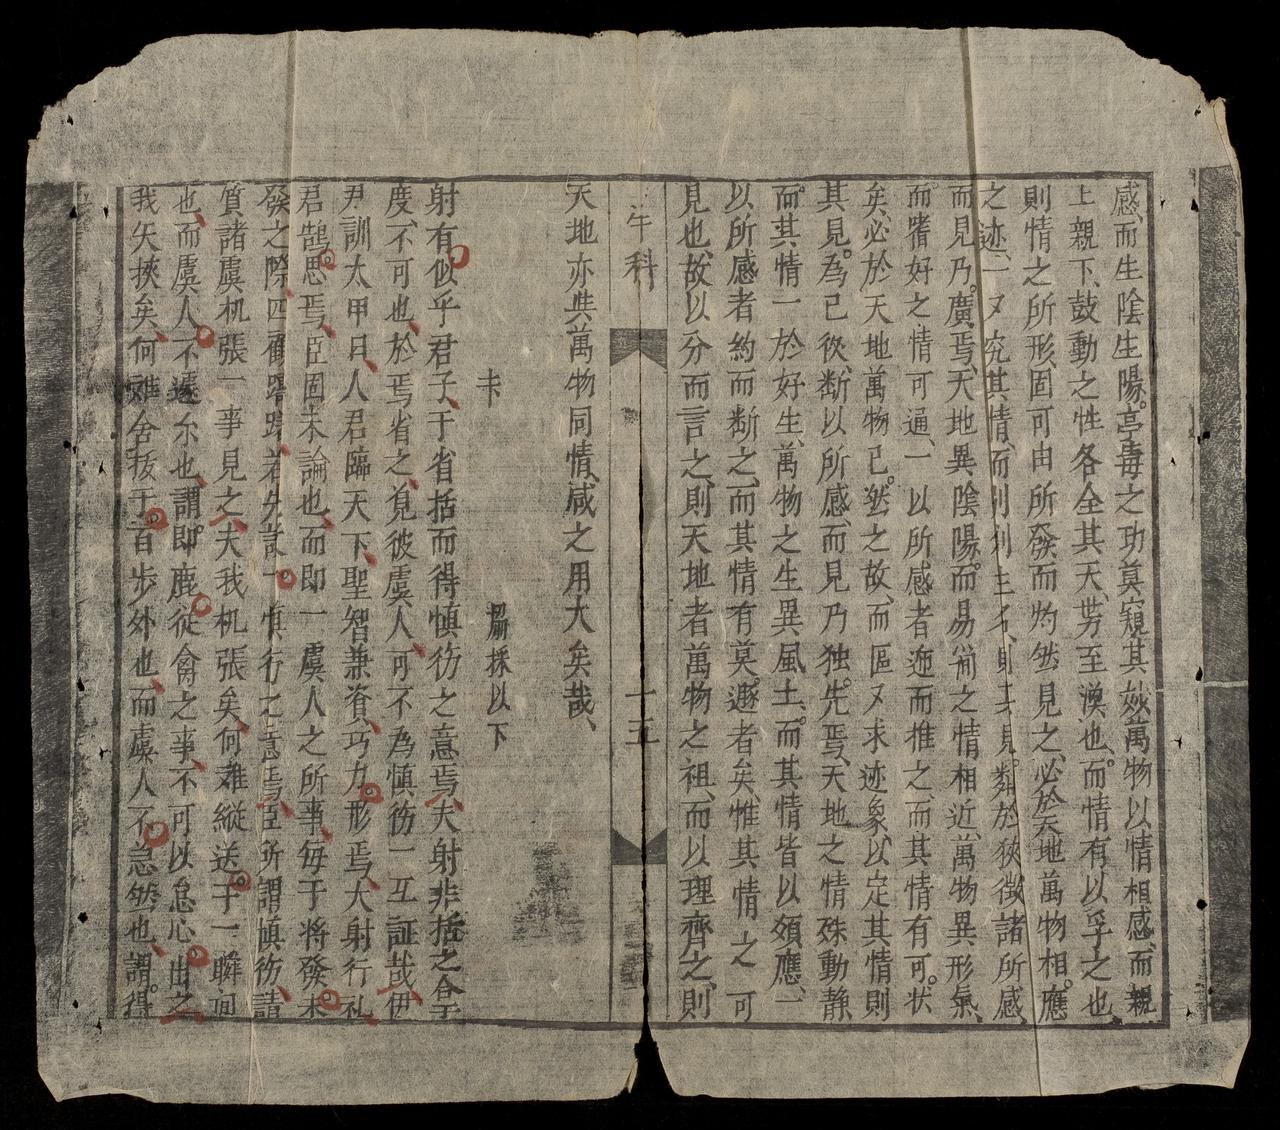 感、而生陰生陽。亭毒之功莫窺其妙萬物以情相感、而親
上親下、鼓動之性各全其天、芳至漠也、而情有以孚之也
則情之所形、固可由所發而灼然見之、必於天地萬物相應
之迹、一又究其情、而則見。類於狹、徵諸所感、
而見乃。廣焉、天地異陰陽。而易簡之情相近、萬物異形氣、
而。嗜好之情可通、一以所感者迩而推之、而其情有可。状
矣、必於天地萬物已。然之故、而區又求迹象、以定其情則
其見。為已後、断以所感、而見乃独。先焉、天地之情殊動静、
而。其情一於好生、萬物之生異風土、而。其情皆以須應、一
以所感者約而断之、而其情有莫。遯者矣惟其情之可
見也、故以分而言之、則天地者萬物之祖、而以理齊之、則
天地亦與萬物同情、咸之用大矣哉、
午科
十五
揭採以下
射有似乎君子、于省括而得慎彷之意焉、夫射非括之合乎
度、不可也、於焉省之、覓彼虞人、可不為慎彷一互証哉、伊
尹訓太甲曰、人君臨天下、聖智兼資、巧力形焉、大射行礼
君鵠思焉、臣固未論也、而即一虞人之所事、每于将發未
發之際、四顧躊躇、若先試一慎行之意焉、臣所謂慎彷、請
質諸虞机張一事見之、夫我机張矣、何难縱送于一瞬间
也、而虞人不遽尔也、謂。即鹿從禽之事、不可以怠心出之
我矢挾矣、何难舍拔于百步外也、而虞人不急然也、謂。得